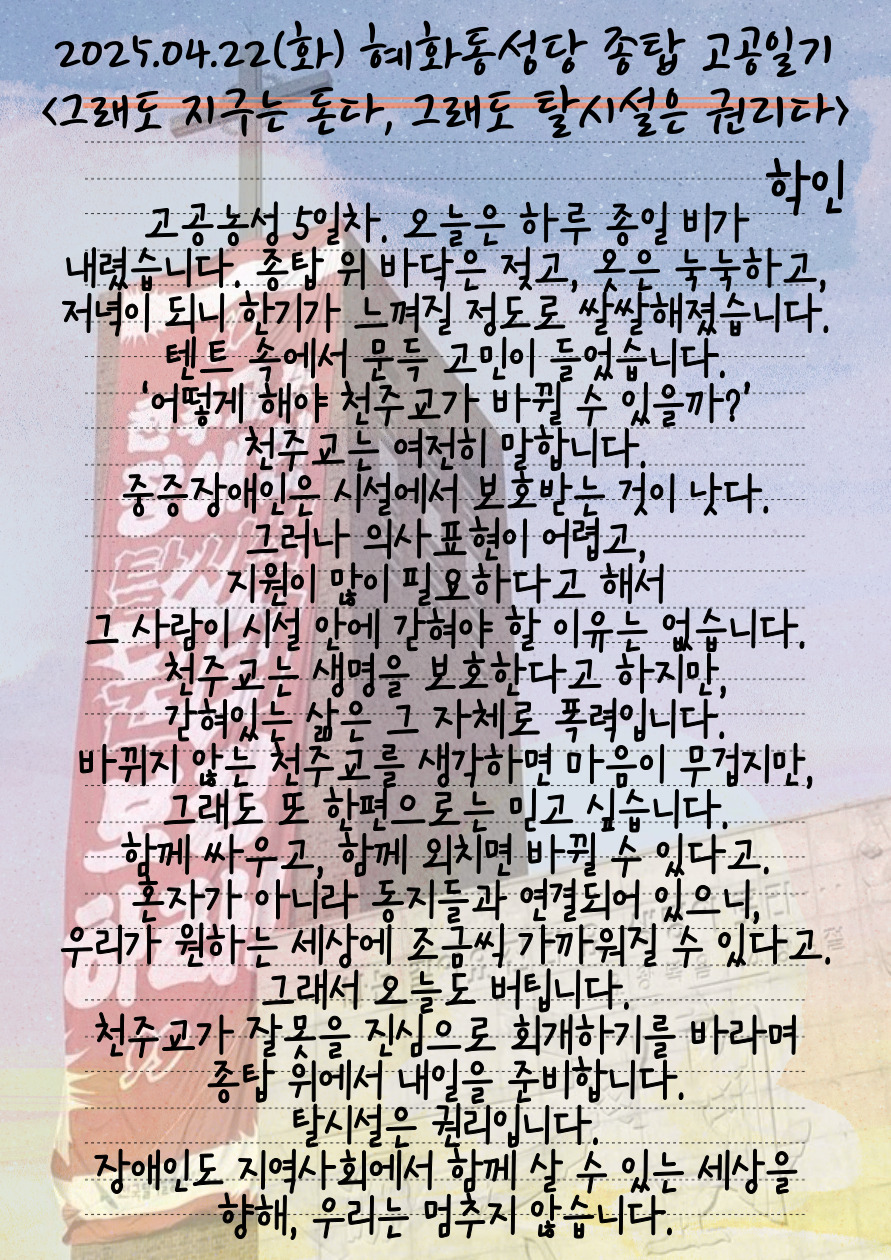 2025.04.22(화) 혜화동성당 종탑 고공일기
<그래도 지구는 돈다, 그래도 탈시설은 권리다>
학인
고공농성 5일차. 오늘은 하루 종일 비가
내렸습니다. 종탑 위 바닥은 젖고, 옷은 눅눅하고,
저녁이 되니 한기가 느껴질 정도로 쌀쌀해졌습니다.
텐트 속에서 문득 고민이 들었습니다.
'어떻게 해야 천주교가 바뀔 수 있을까?'
천주교는 여전히 말합니다.
중증장애인은 시설에서 보호받는 것이 낫다.
그러나 의사 표현이 어렵고,
지원이 많이 필요하다고 해서
그 사람이 시설 안에 갇혀야 할 이유는 없습니다.
천주교는 생명을 보호한다고 하지만,
갇혀있는 삶은 그 자체로 폭력입니다.
바뀌지 않는 천주교를 생각하면 마음이 무겁지만,
그래도 또 한편으로는 믿고 싶습니다.
함께 싸우고, 함께 외치면 바뀔 수 있다고.
혼자가 아니라 동지들과 연결되어 있으니,
우리가 원하는 세상에 조금씩 가까워질 수 있다고.
그래서 오늘도 버팁니다.
천주교가 잘못을 진심으로 회개하기를 바라며
종탑 위에서 내일을 준비합니다.
탈시설은 권리입니다.
장애인도 지역사회에서 함께 살 수 있는 세상을
향해, 우리는 멈추지 않습니다.